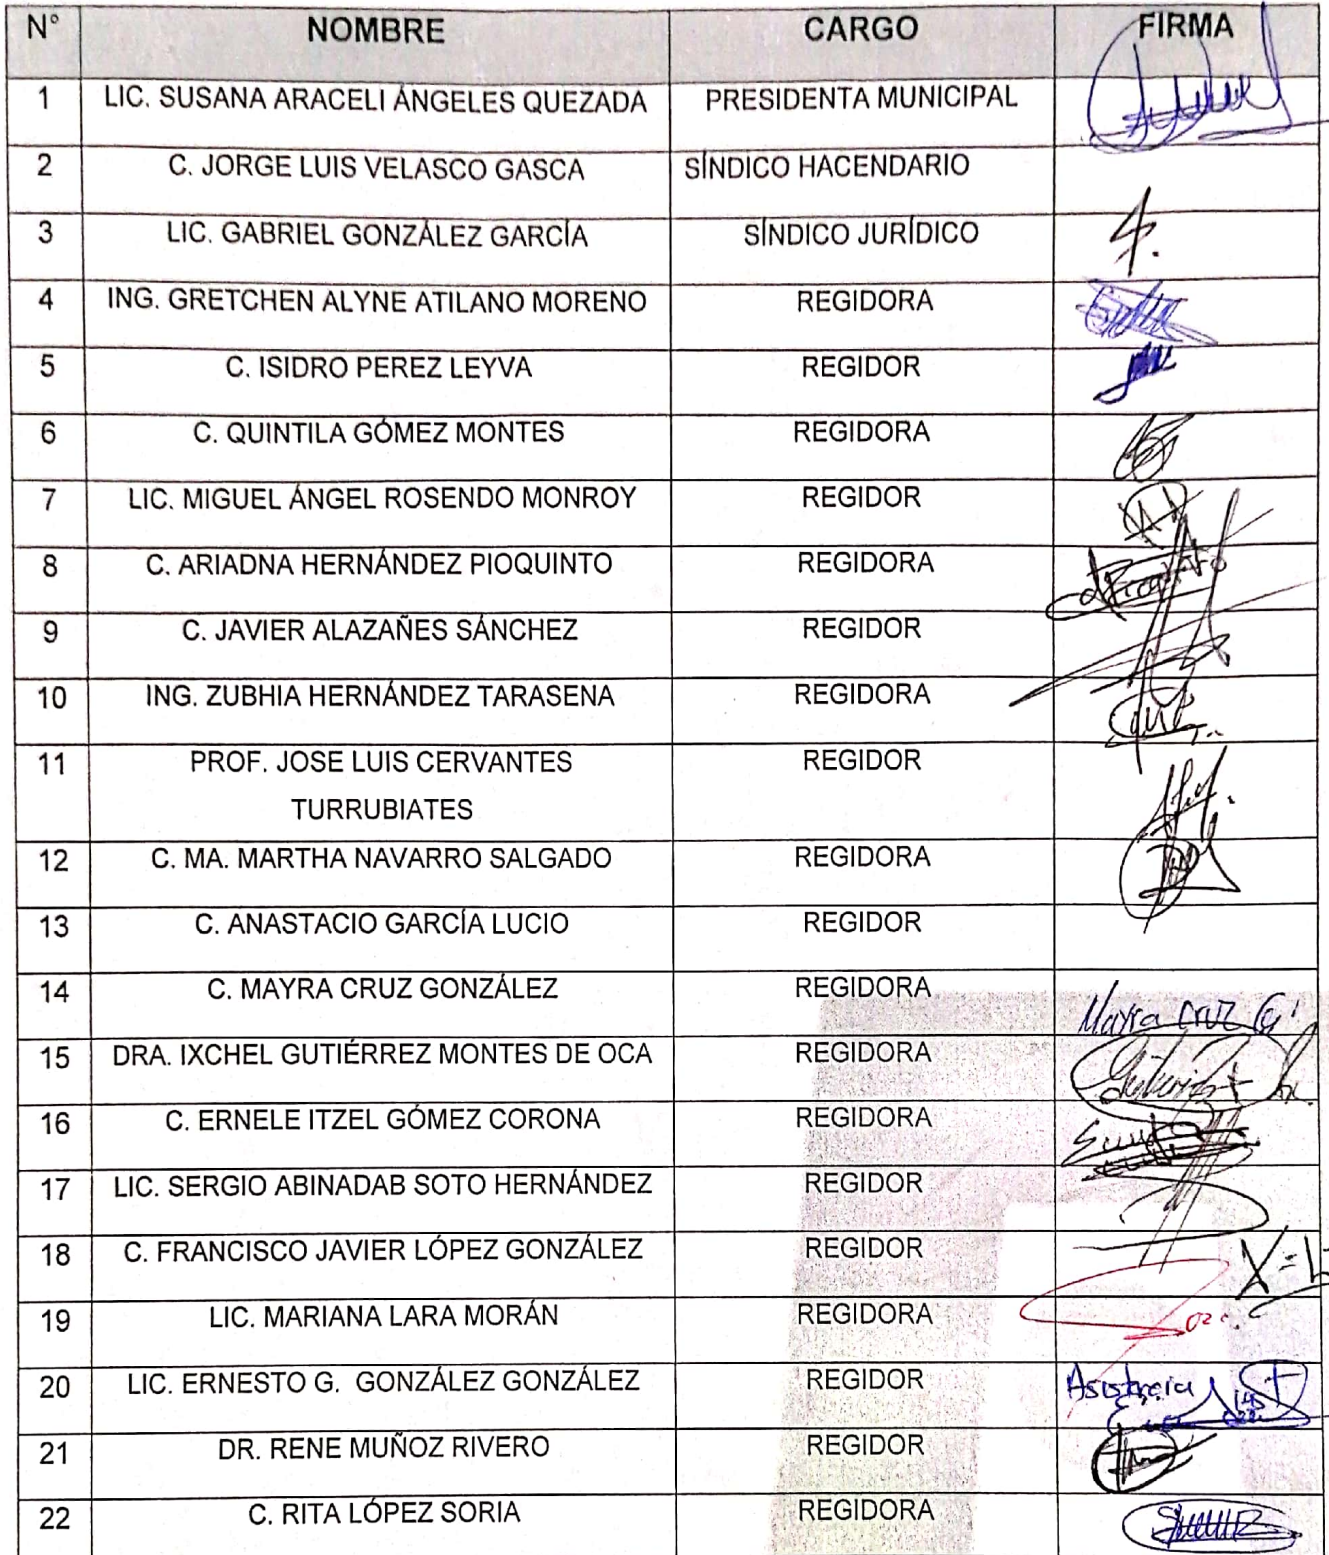 N° NOMBRE CARGO FIRMA
1 LIC. SUSANA ARACELI ÁNGELES QUEZADA PRESIDENTA MUNICIPAL
2 C. JORGE LUIS VELASCO GASCA SÍNDICO HACENDARIO
3 LIC. GABRIEL GONZÁLEZ GARCÍA SÍNDICO JURÍDICO
4 ING. GRETCHEN ALYNE ATILANO MORENO REGIDORA
5 C. ISIDRO PEREZ LEYVA REGIDOR
6 C. QUINTILA GÓMEZ MONTES REGIDORA
7 LIC. MIGUEL ÁNGEL ROSENDO MONROY REGIDOR
8 C. ARIADNA HERNÁNDEZ PIOQUINTO REGIDORA
9 C. JAVIER ALAZAÑES SÁNCHEZ REGIDOR
10 ING. ZUBHIA HERNÁNDEZ TARASENA REGIDORA
11 PROF. JOSE LUIS CERVANTES REGIDOR
TURRUBIATES
12 C. MA. MARTHA NAVARRO SALGADO REGIDORA
13 C. ANASTACIO GARCÍA LUCIO REGIDOR
14 C. MAYRA CRUZ GONZÁLEZ REGIDORA Mayra Cruz G
15 DRA. IXCHEL GUTIÉRREZ MONTES DE OCA REGIDORA
16 C. ERNELE ITZEL GÓMEZ CORONA REGIDORA
17 LIC. SERGIO ABINADAB SOTO HERNÁNDEZ REGIDOR
18 C. FRANCISCO JAVIER LÓPEZ GONZÁLEZ REGIDOR
19 LIC. MARIANA LARA MORÁN REGIDORA
20 LIC. ERNESTO G. GONZÁLEZ GONZÁLEZ REGIDOR Asistencia
21 DR. RENE MUÑOZ RIVERO REGIDOR
22 C. RITA LÓPEZ SORIA REGIDORA